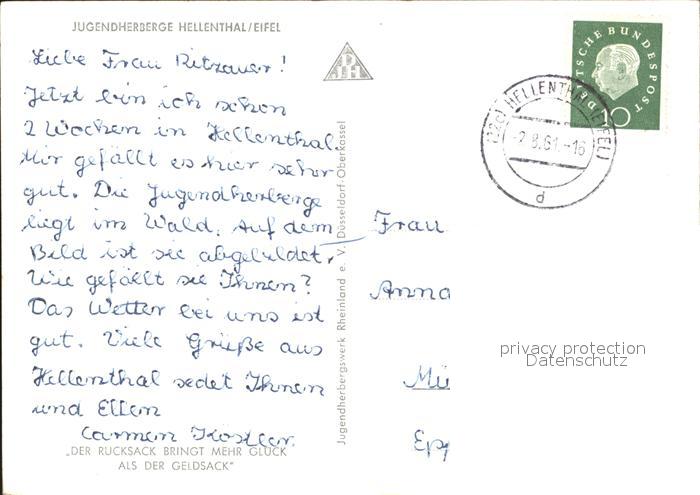 JUGENDHERBERGE HELLENTHAL/EIFEL
Liebe Frau Ritzauer!
Jetzt bin ich schon
2 Wochen in Hellenthal.
Mir gefällt es hier sehr
gut. Die Jugendherberge
liegt im Wald. Auf dem
Bild ist sie abgebildet.
Wie gefällt sie Ihnen?
Das Wetter bei uns ist
gut. Viele Grüße aus
Hellenthal sedet Ihnen
und Ellen
Carmen Kostler.
„DER RUCKSACK BRINGT MEHR GLÜCK
ALS DER GELDSACK“
Jugendherbergswerk Rheinland e. V. Düsseldorf-Oberkassel
DJH
DEUTSCHE BUNDESPOST
10
(22c) HELLENTHAL (EIFEL)
-2.8.61.-16
d
Frau
Anna
Mü
Epp
privacy protection
Datenschutz